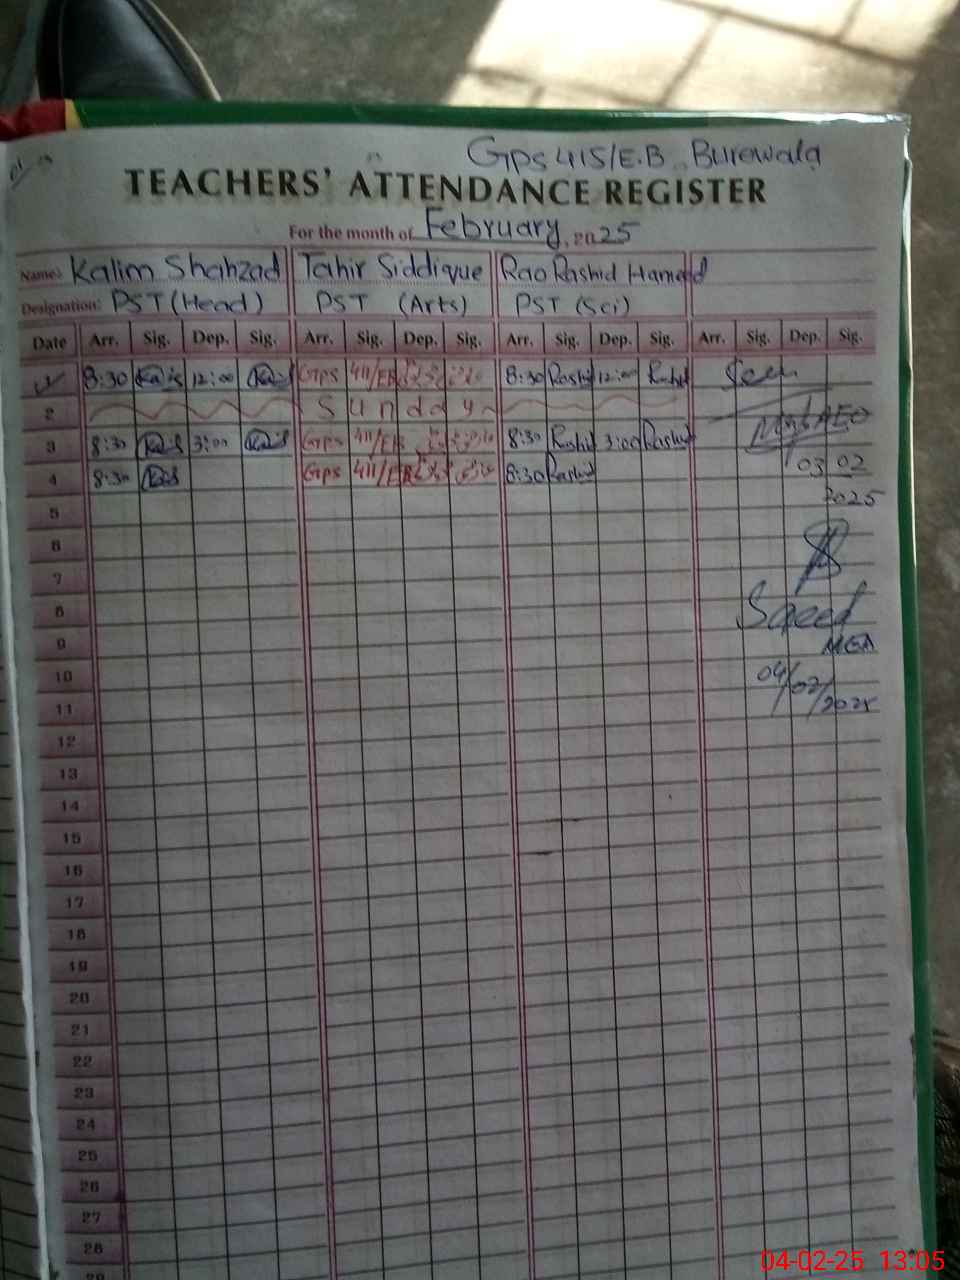 GPS 415/E.B Burewala
TEACHERS' ATTENDANCE REGISTER
For the month of February, 2025
Name: Kalim Shahzad Tahir Siddique Rao Rashid Hameed
Designation: PST (Head) PST (Arts) PST (Sci)
Date Arr. Sig. Dep. Sig. Arr. Sig. Dep. Sig. Arr. Sig. Dep. Sig. Arr. Sig. Dep. Sig.
1 8:30 12:00 Gps 411/EB 8:30 Rashid 12:00 Rashid Seen
2 Sunday
3 8:30 3:00 Gps 411/EB 8:30 Rashid 3:00 Rashid AEO
4 8:30 Gps 411/EB 8:30 Rashid 03 02
5 2025
6
7
8 Saeed
9 MEA
10 04/02/2025
11
12
13
14
15
16
17
18
19
20
21
22
23
24
25
26
27
28
29
04-02-25 13:05